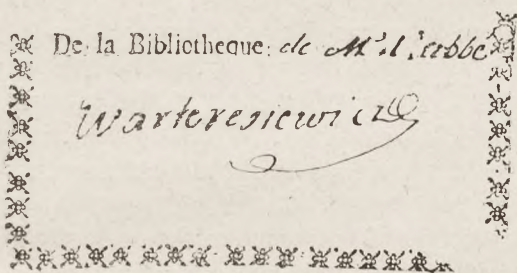 De la Bibliotheque de Mr. l'abbé
Warteresiewicz